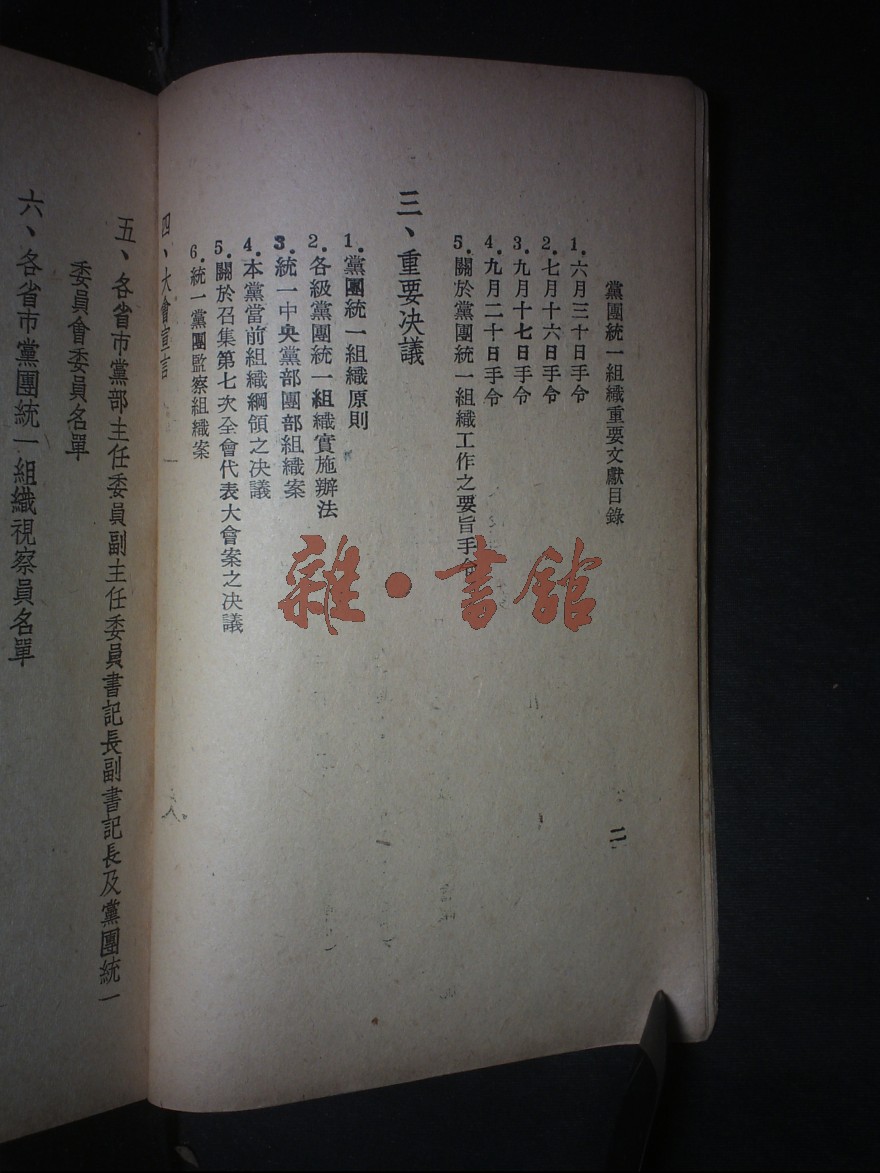 黨團統一組織重要文獻目錄
二
1.六月三十日手令
2.七月十六日手令
3.九月十七日手令
4.九月二十日手令
5.關於黨團統一組織工作之要旨手令
三、重要决議
1.黨團統一組織原則
2.各級黨團統一組織實施辦法
3.統一中央黨部團部組織案
4.本黨當前組織綱領之决議
5.關於召集第七次全會代表大會案之决議
6.統一黨團監察組織案
四、大會宣言
五、各省市黨部主任委員副主任委員書記長副書記長及黨團統一
委員會委員名單
六、各省市黨團統一組織視察員名單
雜·書館